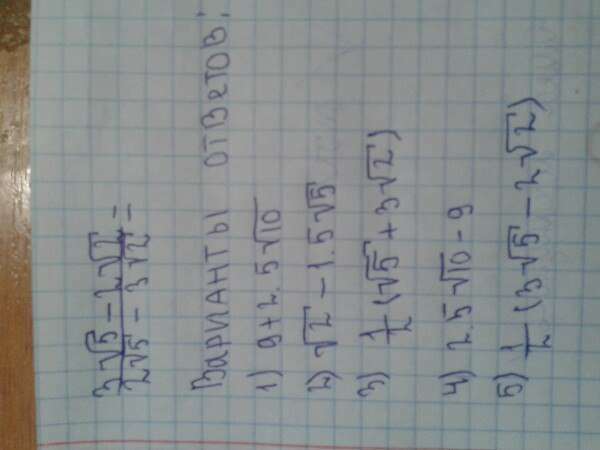 (3√5 - 2√2)/(2√5 - 3√2) =
Варианты ответов:
1) 9+2.5√10
2) √2 - 1.5√5
3) 1/2 (√5 + 3√2)
4) 2.5√10 - 9
5) 1/2 (3√5 - 2√2)